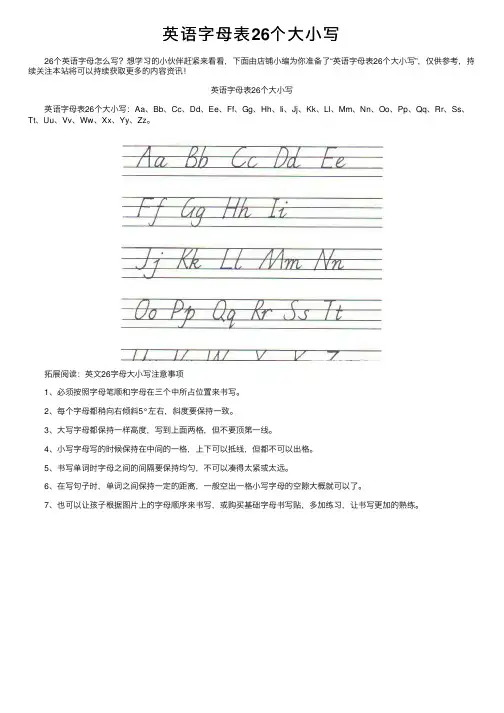 英语字母表26个大小写
26个英语字母怎么写？想学习的小伙伴赶紧来看看，下面由店铺小编为你准备了“英语字母表26个大小写”，仅供参考，持
续关注本站将可以持续获取更多的内容资讯！
英语字母表26个大小写
英语字母表26个大小写：Aa、Bb、Cc、Dd、Ee、Ff、Gg、Hh、Ii、Jj、Kk、Ll、Mm、Nn、Oo、Pp、Qq、Rr、Ss、
Tt、Uu、Vv、Ww、Xx、Yy、Zz。
Aa Bb Cc Dd Ee
Ff Gg Hh Ii
Jj Kk Ll Mm Nn
Oo Pp Qq Rr Ss Tt
拓展阅读：英文26字母大小写注意事项
1、必须按照字母笔顺和字母在三个中所占位置来书写。
2、每个字母都稍向右倾斜5°左右，斜度要保持一致。
3、大写字母都保持一样高度，写到上面两格，但不要顶第一线。
4、小写字母写的时候保持在中间的一格，上下可以抵线，但都不可以出格。
5、书写单词时字母之间的间隔要保持均匀，不可以凑得太紧或太远。
6、在写句子时，单词之间保持一定的距离，一般空出一格小写字母的空隙大概就可以了。
7、也可以让孩子根据图片上的字母顺序来书写，或购买基础字母书写贴，多加练习，让书写更加的熟练。